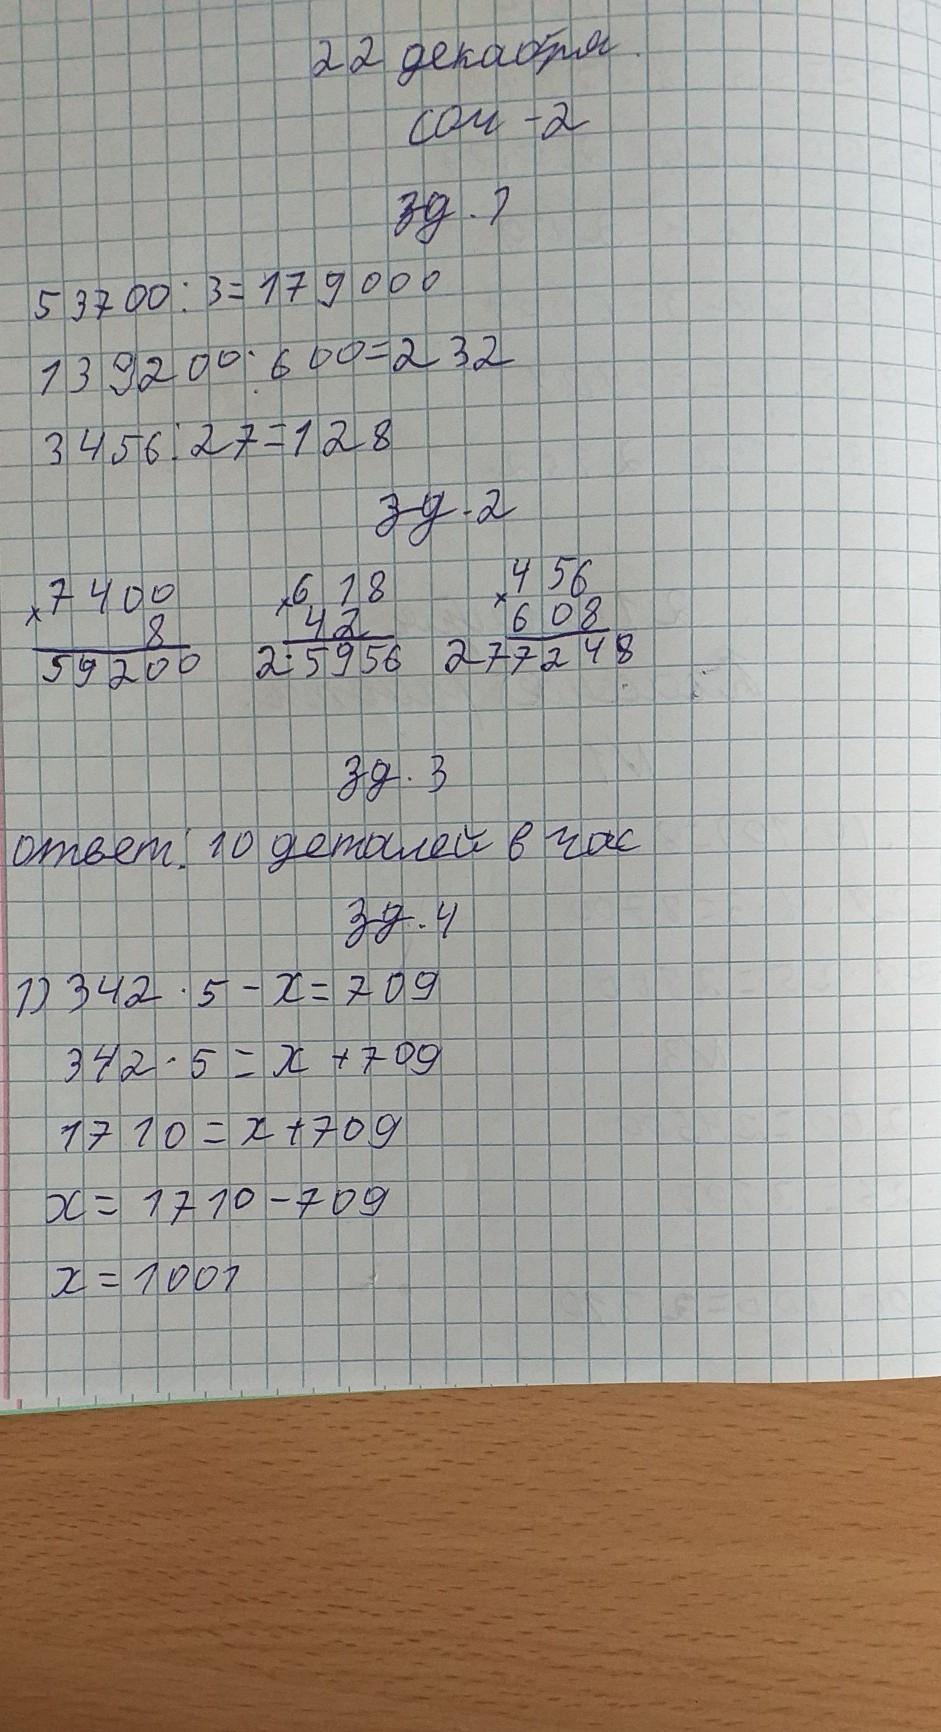 22 декабря.
соч -2
зд. 1
53700 : 3 = 179000
139200 : 600 = 232
3456 : 27 = 128
зд. 2
×7400 ×618 ×456
8 42 608
59200 25956 277248
зд. 3
ответ: 10 деталей в час
зд. 4
1) 342 · 5 - x = 709
342 · 5 = x + 709
1710 = x + 709
x = 1710 - 709
x = 1001